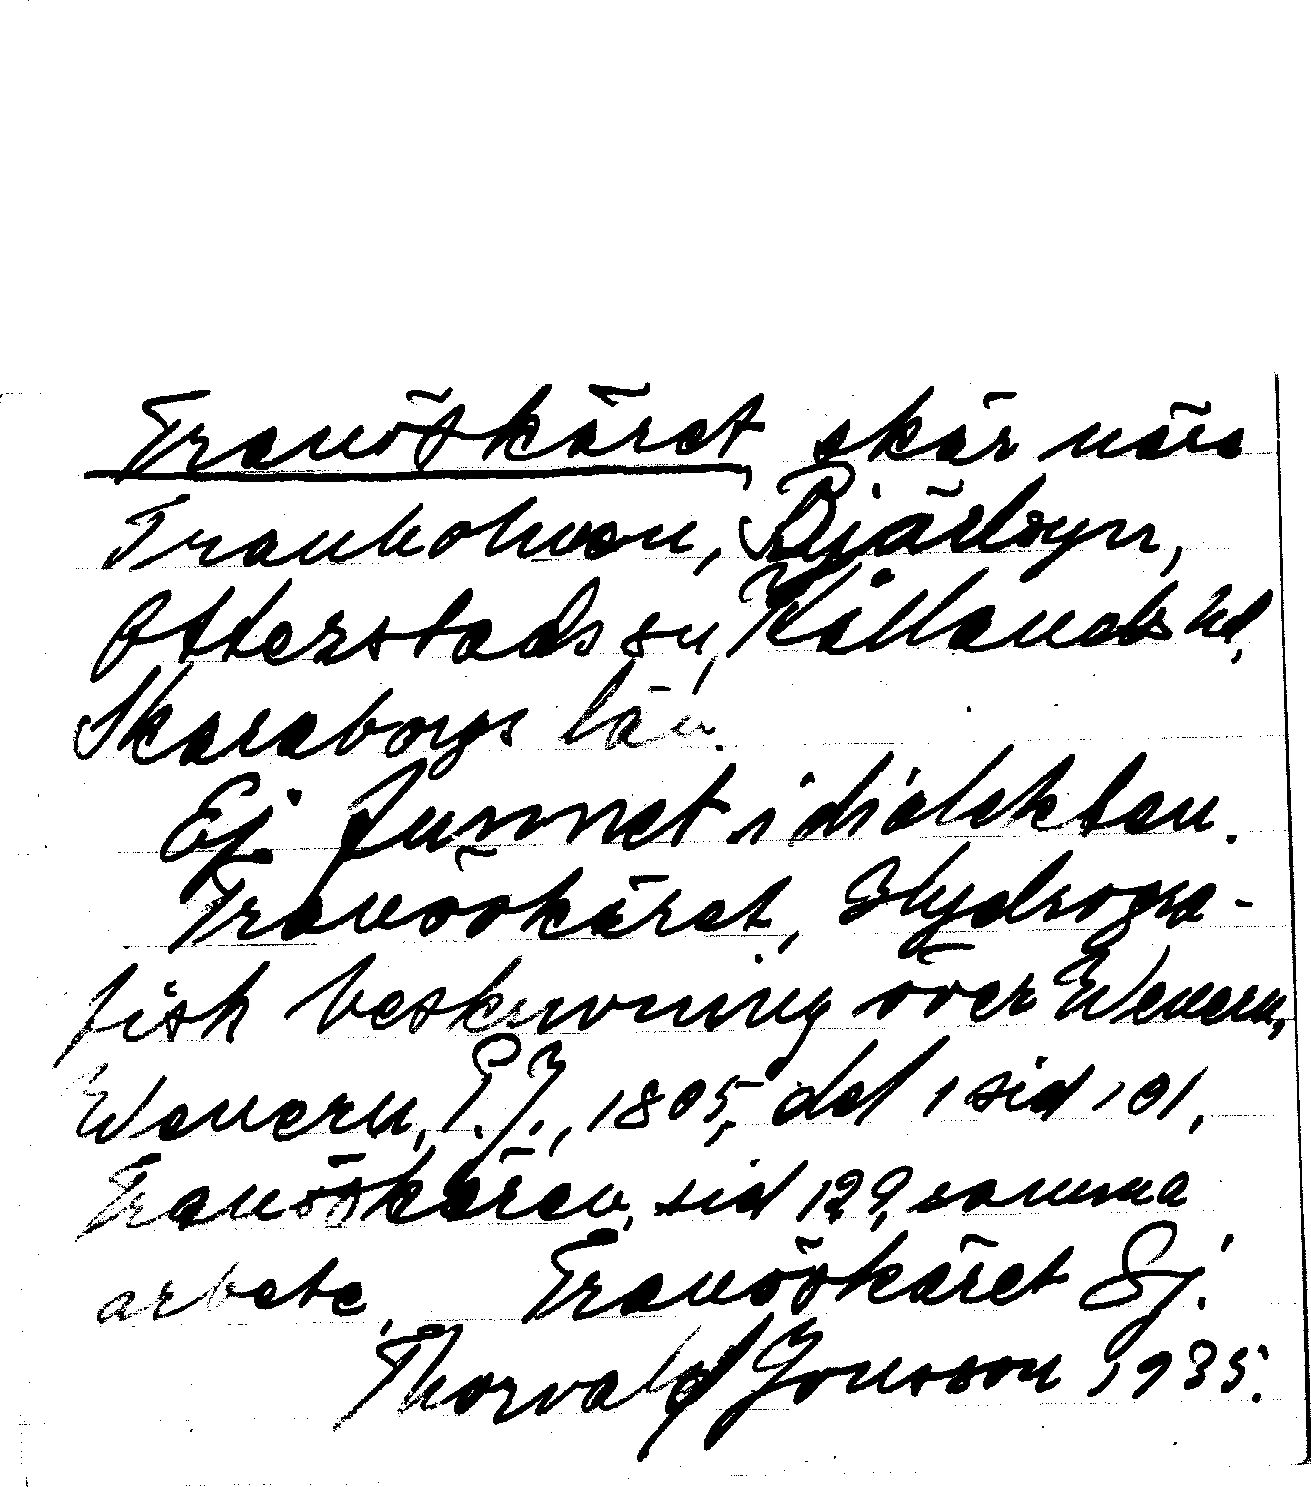 Tranöskäret, skär nära
Tranholmen, Bjärbyn,
Otterstads sn, Kållands hd,
Skaraborgs län.
Ej funnet i dialekten.
Tranöskäret, Hydrogra-
fisk beskrivning över Wenern,
Wenern, 1805, del 1 sid 101,
Tranöskären, sid 129, samma
arbete, Tranöskäret Sj.
Thorvald Jonsson 1935.